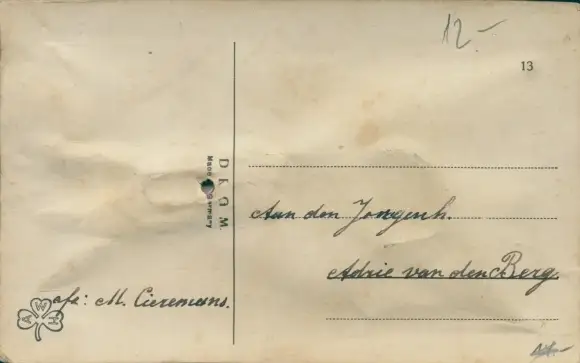 12-
13
D. R. G. M.
Made in Germany
Aan den Jongenh.
Adrie van den Berg.
afz: M. Cieremans.
A W H